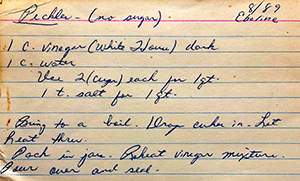 Pickles - (no sugar)
8/89
Earline
1 C. vinegar (White House) dark
1 C. water
Use 2 (cups) each for 1 qt.
1 t. salt for 1 qt.
Bring to a boil. Drop cukes in. Let
heat thru.
Pack in jars. Reheat vinegar mixture.
Pour over and seal.